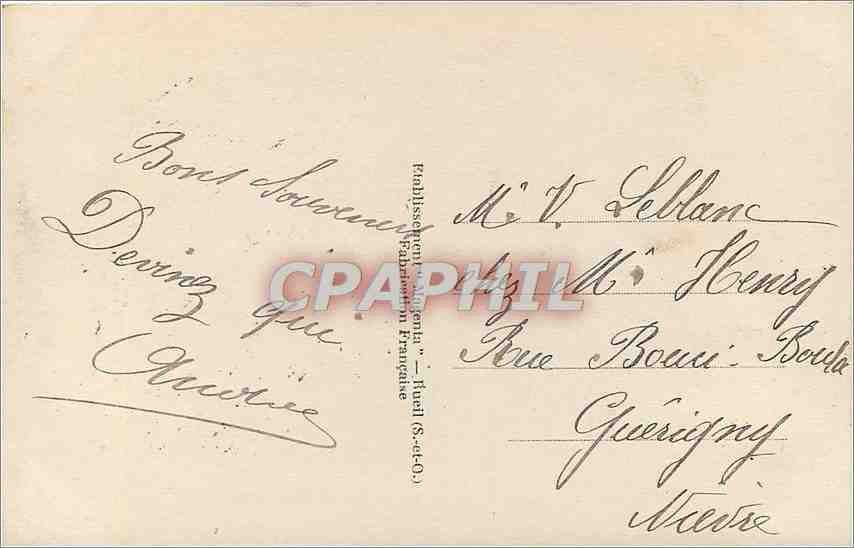 Bons Souvenirs
Devinez
qui.
Andrée
Etablissement "Magenta" — Rueil (S.-et-O.)
Fabrication Française
CPAPHIL
Mr V. Leblanc
chez Mr Henry
Rue
Guérigny
Nièvre